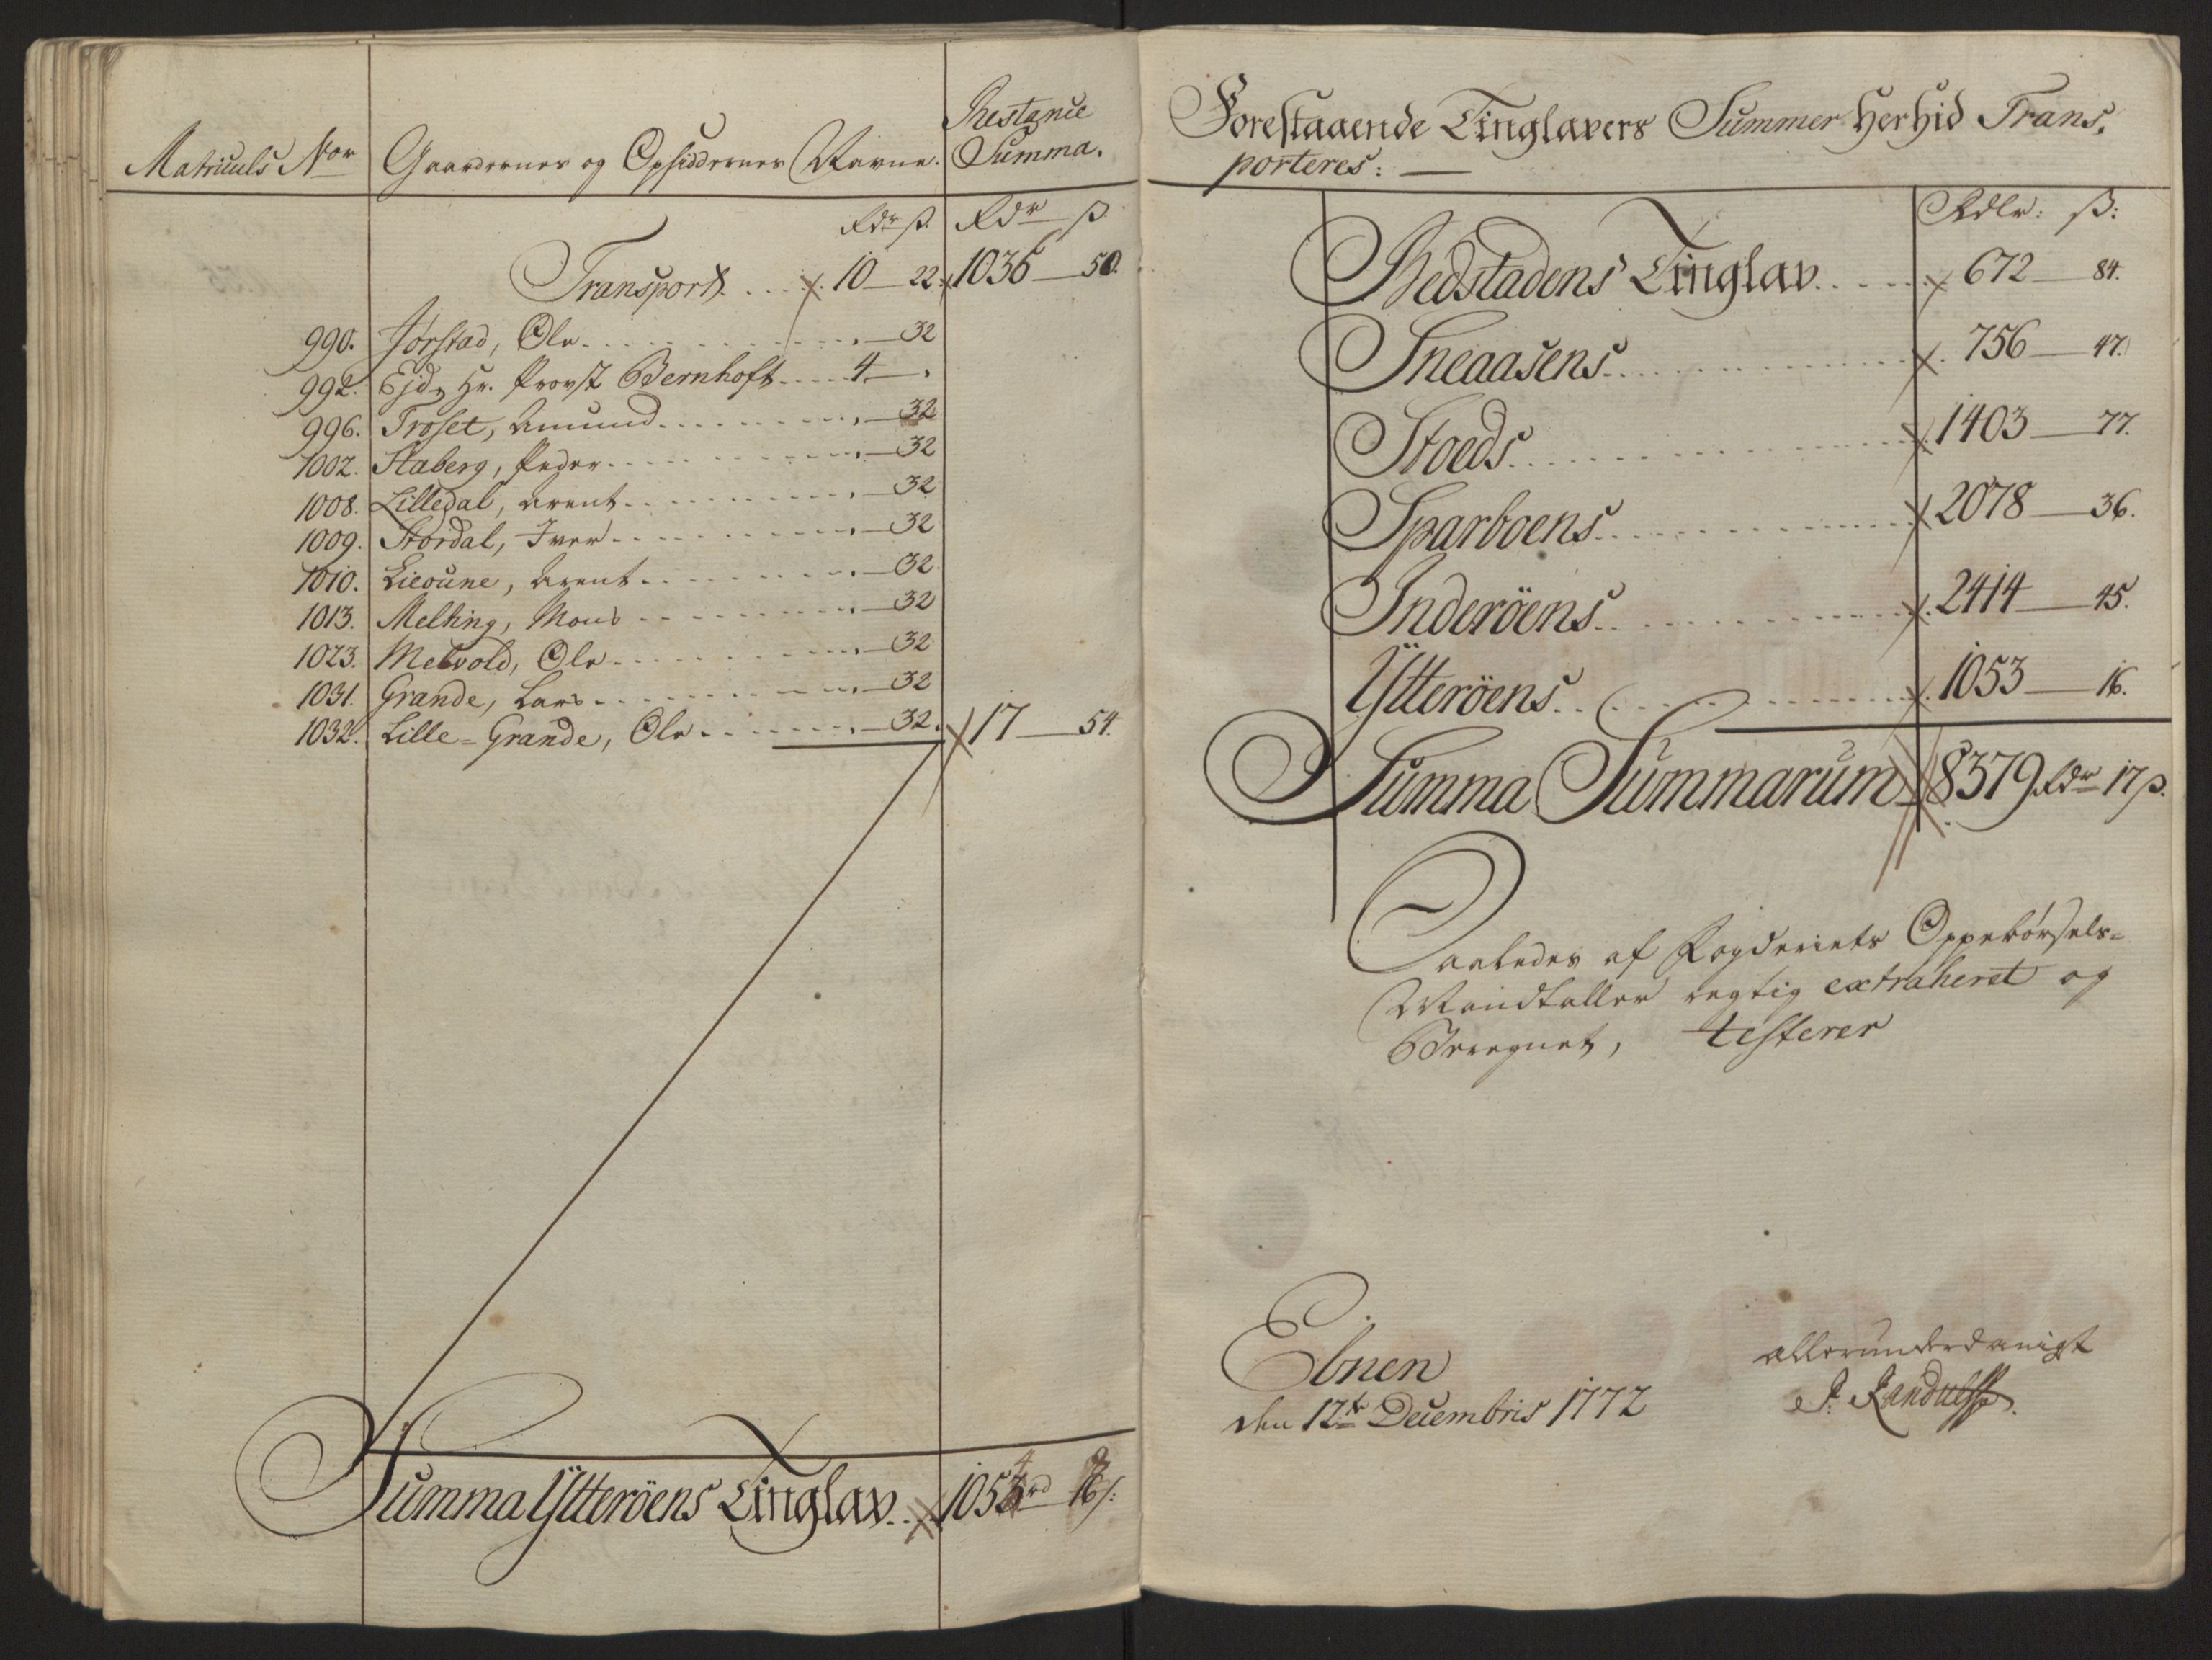 Matriculs Nor Gaardernes og Opsiddernes Navne. Restance Summa.
Rdr ß. Rdr ß
Transport. . . . 10 — 22. 1036 — 50.
990. Jørstad, Ole . . . . — 32
992. Ejd, Hr. Provst Bernhoft . . . . 4 — .
996. Troset, Amund . . . . — 32
1002. Staberg, Peder . . . . — 32
1008. Lilledal, Arent . . . . — 32
1009. Stordal, Iver . . . . — 32
1010. Lieoune, Arent . . . . — 32
1013. Melting, Mons . . . . — 32
1023. Metvold, Ole . . . . — 32
1031. Grande, Lars . . . . — 32
1032. Lille-Grande, Ole . . . . — 32. 17 — 54.
Summa Ytterøens Tinglav. . .
Forestaaende Tinglavers Summer Herhid Trans,
porteres: —
Rdlr: ß:
Bedstadens Tinglav. . . . 672 — 84.
Sneaasens . . . . 756 — 47.
Stoeds . . . . 1403 — 77.
Sparboens . . . . 2078 — 36.
Inderöens . . . . 2414 — 45.
Ytteröens . . . . 1053 — 16.
Summa Summarum 8379 Rdr 17 ß.
Saaledes af Fogderiets Oppebørsels-
Mandtaller rigtig extraheret og
Beregnet, testerer
Elnen
den 12te Decembris 1772
allerunderdanigst
J. Randulff